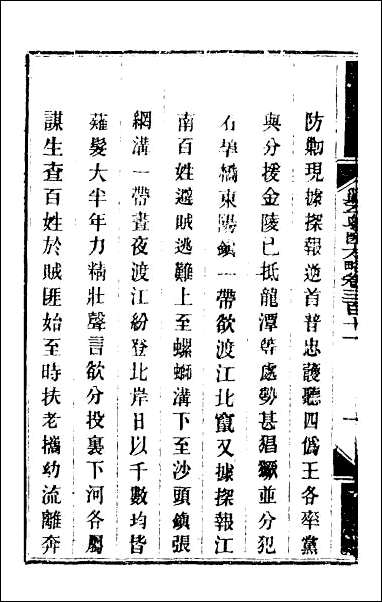 防勦現據探報逆首普忠護聽四僞王各率黨
與分援金陵已抵龍潭等處勢甚猖獗並分犯
石阜橋東陽鎭一帶欲渡江北竄又據探報江
南百姓避賊逃難上至螺螄溝下至沙頭鎭張
網溝一帶晝夜渡江紛登北岸日以千數均皆
薙髮大半年力精壯聲言欲分投裏下河各屬
謀生查百姓於賊匪始至時扶老攜幼流離奔